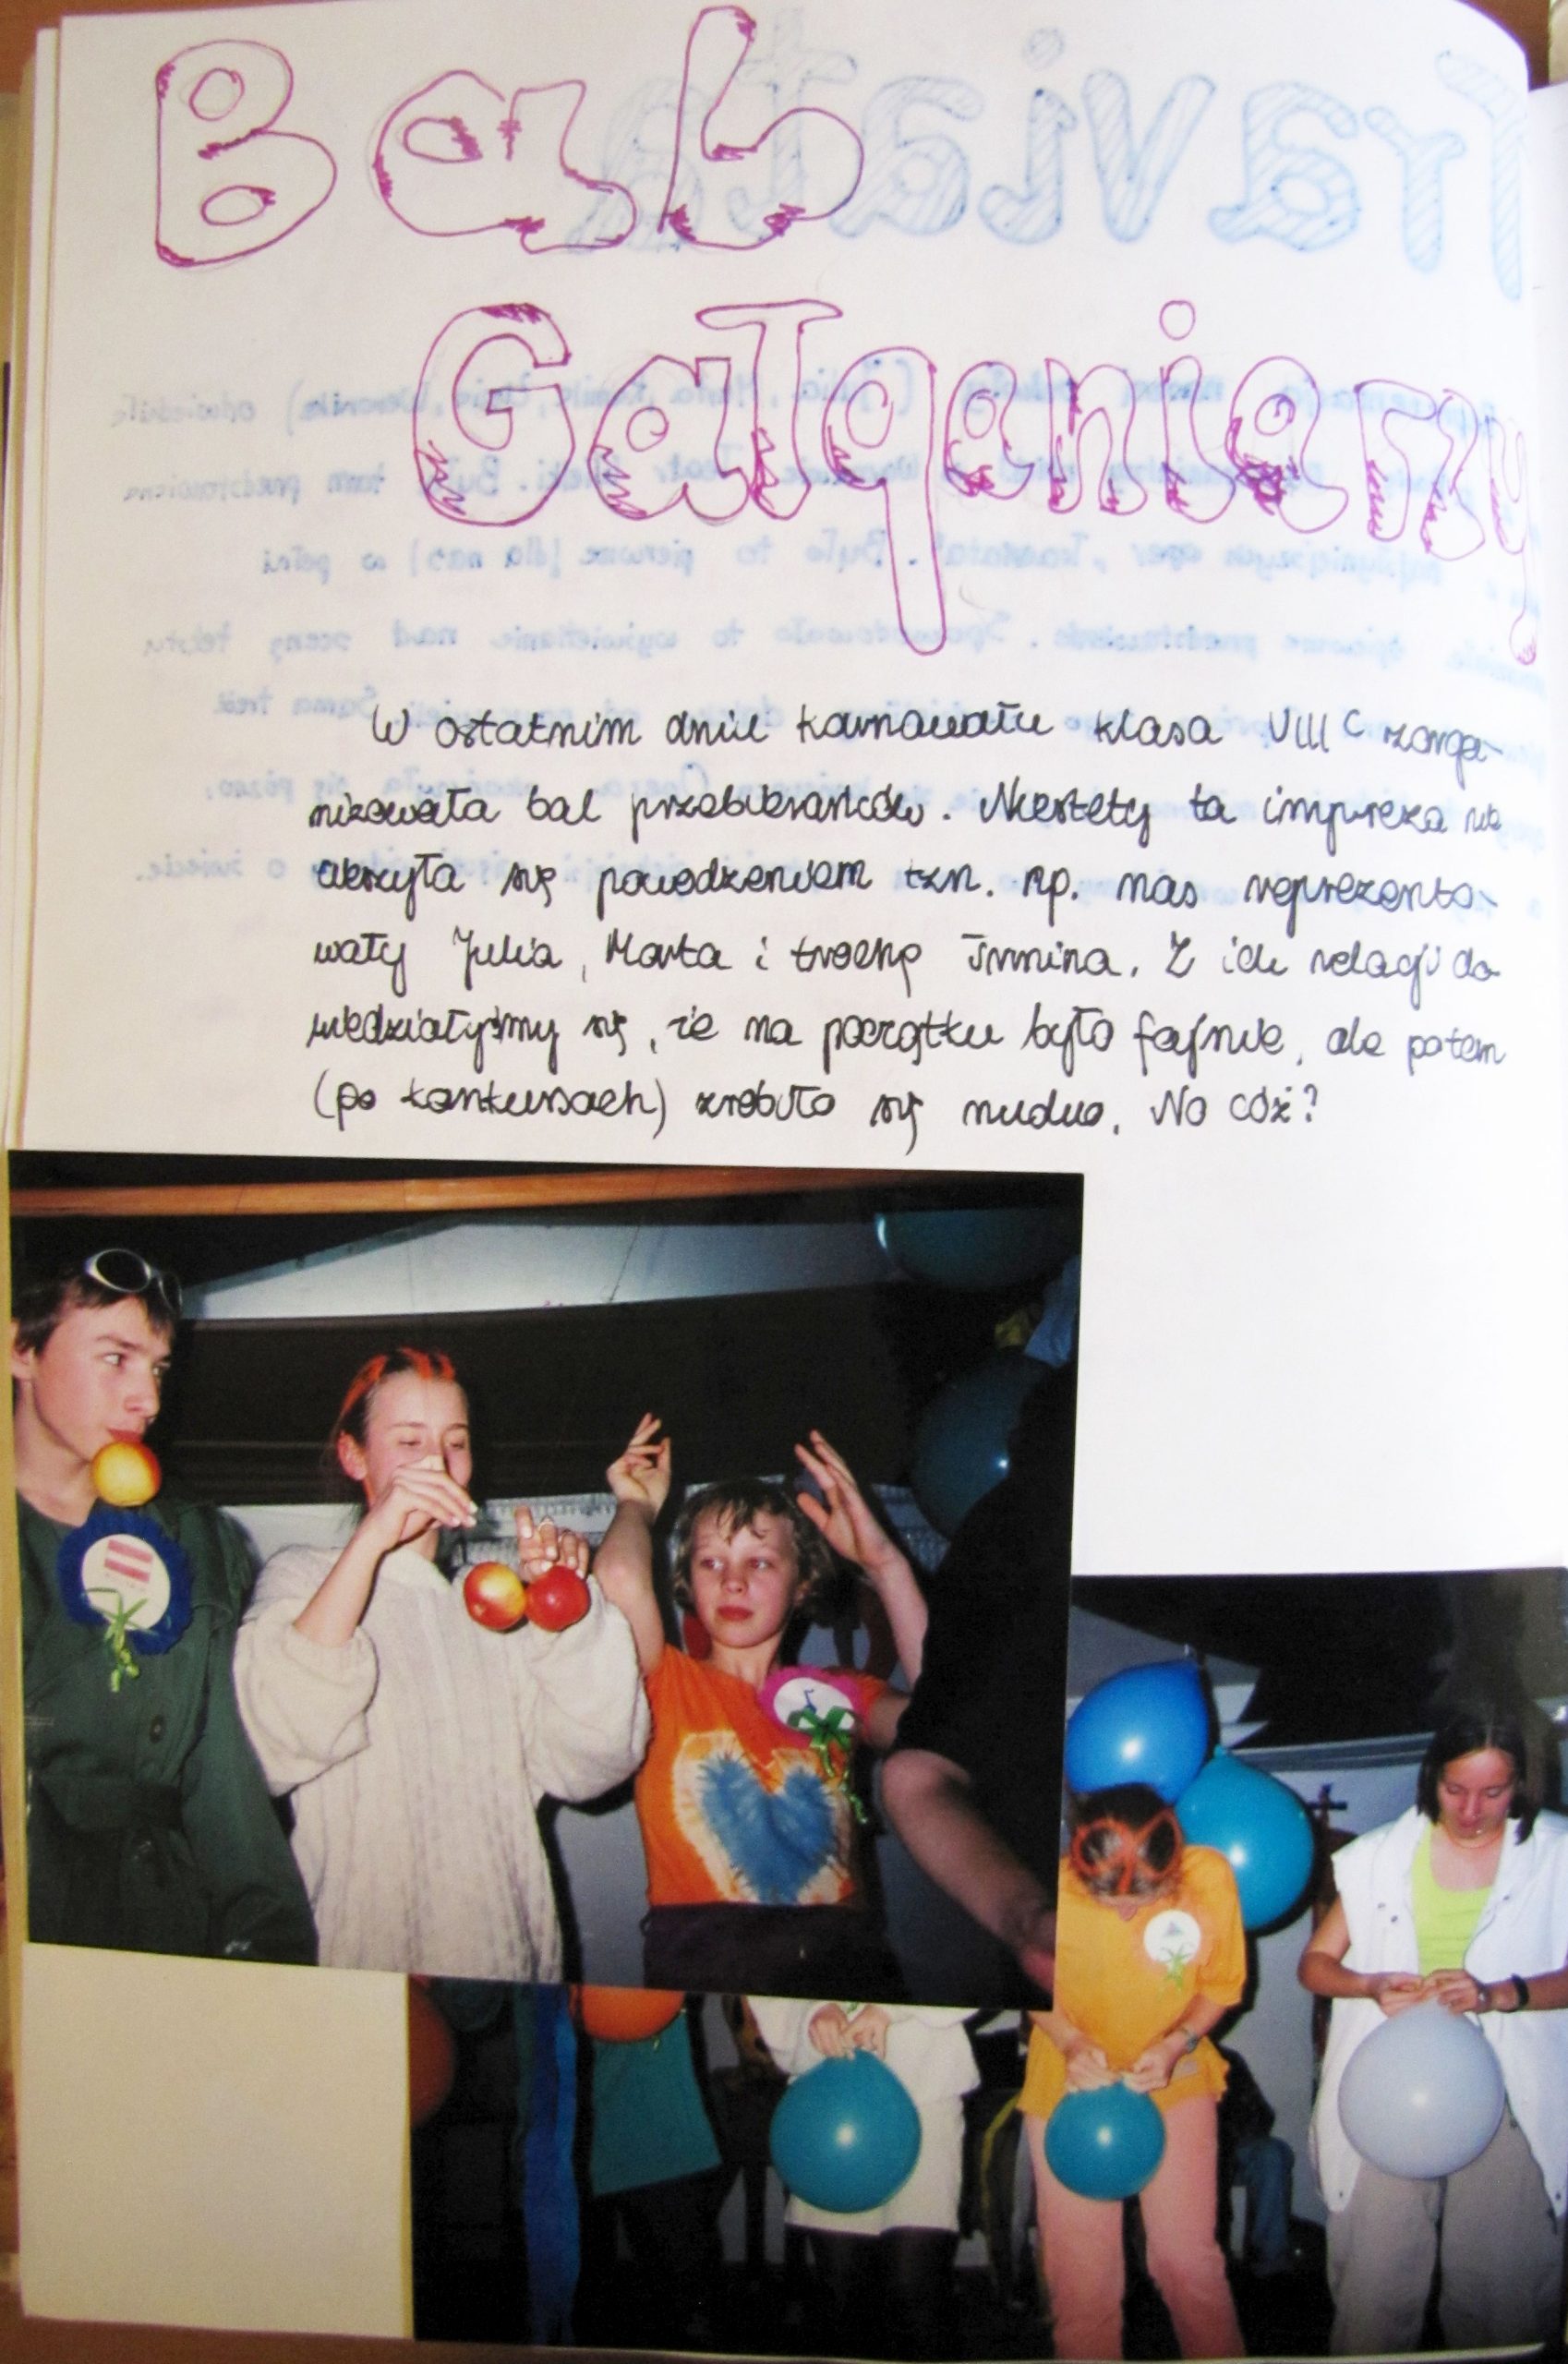 Bal
Gałganiarzy
W ostatnim dniu karnawału klasa VIII c zorga-
nizowała bal przebierańców. Niestety ta impreza nie
cieszyła się powodzeniem tzn. np. nas reprezento-
wały Julia, Marta i trochę Janina. Z ich relacji do-
wiedziałyśmy się, że na początku było fajnie, ale potem
(po konkursach) zrobiło się nudno. No cóż?